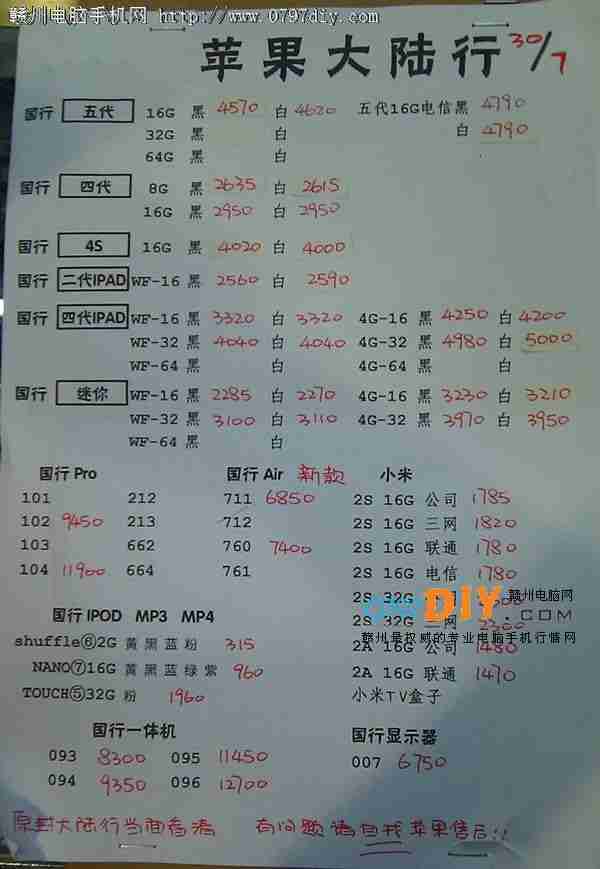 赣州电脑手机网 http://www.0797diy.com
苹果大陆行 30/7
国行 五代 16G 黑 4570 白 4620 五代16G电信黑 4790
32G 黑 白 白 4790
64G 黑 白
国行 四代 8G 黑 2635 白 2615
16G 黑 2950 白 2950
国行 4S 16G 黑 4020 白 4000
国行 二代IPAD WF-16 黑 2560 白 2590
国行 四代IPAD WF-16 黑 3320 白 3320 4G-16 黑 4250 白 4200
WF-32 黑 4040 白 4040 4G-32 黑 4980 白 5000
WF-64 黑 白 4G-64 黑 白
国行 迷你 WF-16 黑 2285 白 2270 4G-16 黑 3230 白 3210
WF-32 黑 3100 白 3110 4G-32 黑 3970 白 3950
WF-64 黑 白
国行 Pro 国行 Air 新款 小米
101 212 711 6850 2S 16G 公司 1785
102 9450 213 712 2S 16G 三网 1820
103 662 760 7400 2S 16G 联通 1780
104 11900 664 761 2S 16G 电信 1780
2S 32G
DIY.COM 赣州电脑网
国行 IPOD MP3 MP4 2S 32G 网 2300
赣州最权威的专业电脑手机行情网
shuffle⑥2G 黄黑蓝粉 315 2A 16G 公司 1480
NANO⑦16G 黄黑蓝绿紫 960 2A 16G 联通 1470
TOUCH⑤32G 粉 1960 小米TV盒子
国行一体机 国行显示器
093 8300 095 11450 007 6750
094 9350 096 12700
原封大陆行当面看清 有问题请自找苹果售后!!